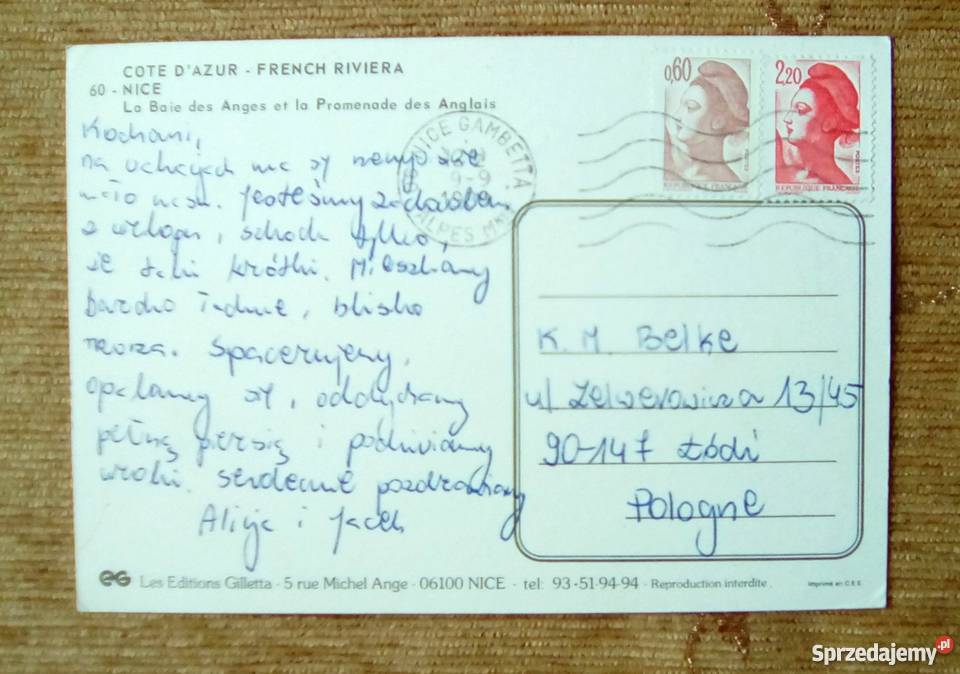 COTE D'AZUR - FRENCH RIVIERA
60 - NICE
La Baie des Anges et la Promenade des Anglais
0,60
2,20
REPUBLIQUE FRANCAISE
NICE GAMBETTA
9-9
ALPES MMES
Kochani,
na
mało Jesteśmy
z urlopu, szkoda tylko,
że taki krótki. Mieszkamy
bardzo ładnie, blisko
morza. Spacerujemy,
opalamy się, oddychamy
pełną piersią i podziwiamy
uroki. Serdecznie pozdrawiamy
Alicja i Jacek
K. M. Belke
ul Zelwerowicza 13/45
90-147 Łódź
Pologne
EG Les Editions Gilletta - 5 rue Michel Ange - 06100 NICE - tel: 93-51-94-94 - Reproduction interdite.
Imprimé en C.E.E.
Sprzedajemy.pl